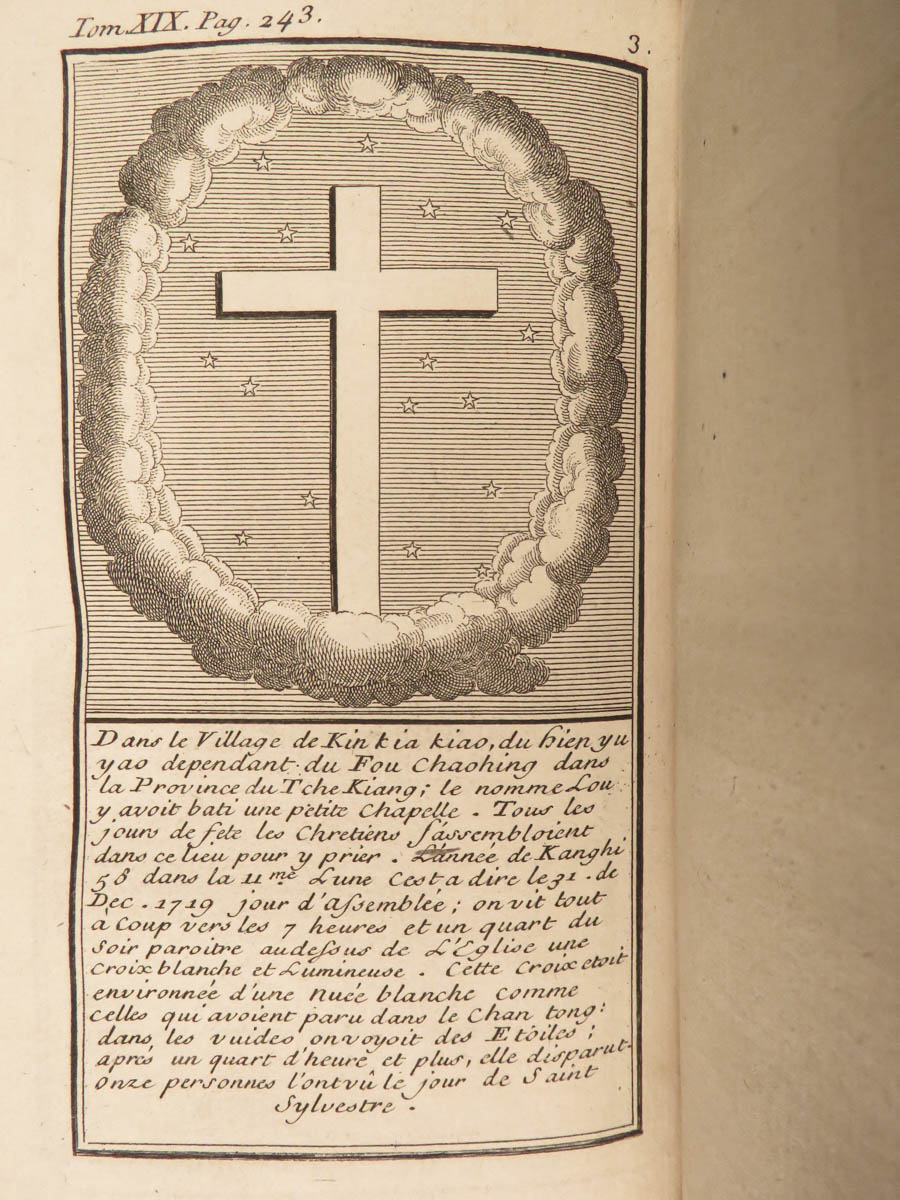 Tom. XIX. Pag. 243.
3.
Dans le Village de Kin kia kiao, du hien yu
yao dependant du Fou Chaohing dans
la Province du Tche Kiang; le nomme Lou
y avoit bati une petite Chapelle. Tous les
jours de fete les Chretiens s'assembloient
dans ce lieu pour y prier. L'année de Kanghi
58 dans la 11me Lune Cest a dire le 31. de
Dec. 1719 jour d'Assemblée; on vit tout
à Coup vers les 7 heures et un quart du
Soir paroitre audessus de L'Eglise une
Croix blanche et Lumineuse. Cette Croix etoit
environnée d'une Nuée blanche comme
Celles qui avoient paru dans le Chan tong:
dans les vuides on voyoit des Etoiles;
après un quart d'heure et plus, elle disparut.
Onze personnes l'ont vû le jour de Saint
Sylvestre.